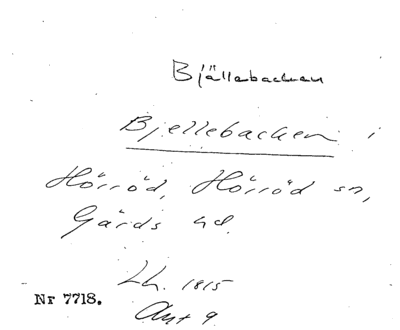 Bjällebacken
Bjellebacken i
Hörröd, Hörröd sn,
Gärds hd.
Lh. 1815
Akt 9
Nr 7718.